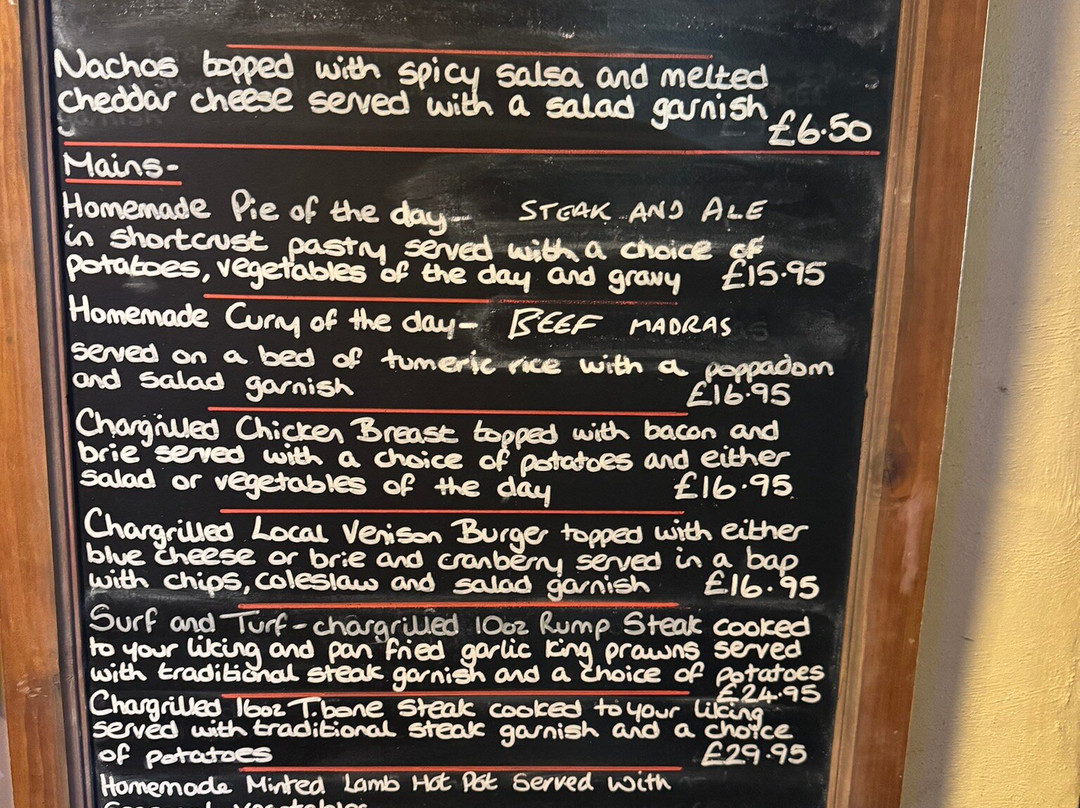 Nachos topped with spicy salsa and melted
cheddar cheese served with a salad garnish
£6.50
Mains-
Homemade Pie of the day- STEAK AND ALE
in shortcrust pastry served with a choice of
potatoes, vegetables of the day and gravy £15.95
Homemade Curry of the day- BEEF MADRAS
served on a bed of tumeric rice with a poppadom
and salad garnish £16.95
Chargrilled Chicken Breast topped with bacon and
brie served with a choice of potatoes and either
salad or vegetables of the day £16.95
Chargrilled Local Venison Burger topped with either
blue cheese or brie and cranberry served in a bap
with chips, coleslaw and salad garnish £16.95
Surf and Turf-chargrilled 10oz Rump Steak cooked
to your liking and pan fried garlic king prawns served
with traditional steak garnish and a choice of potatoes
£24.95
Chargrilled 16oz T.bone Steak cooked to your liking
served with traditional steak garnish and a choice
of potatoes £29.95
Homemade Minted Lamb Hot Pot Served with
vegetables